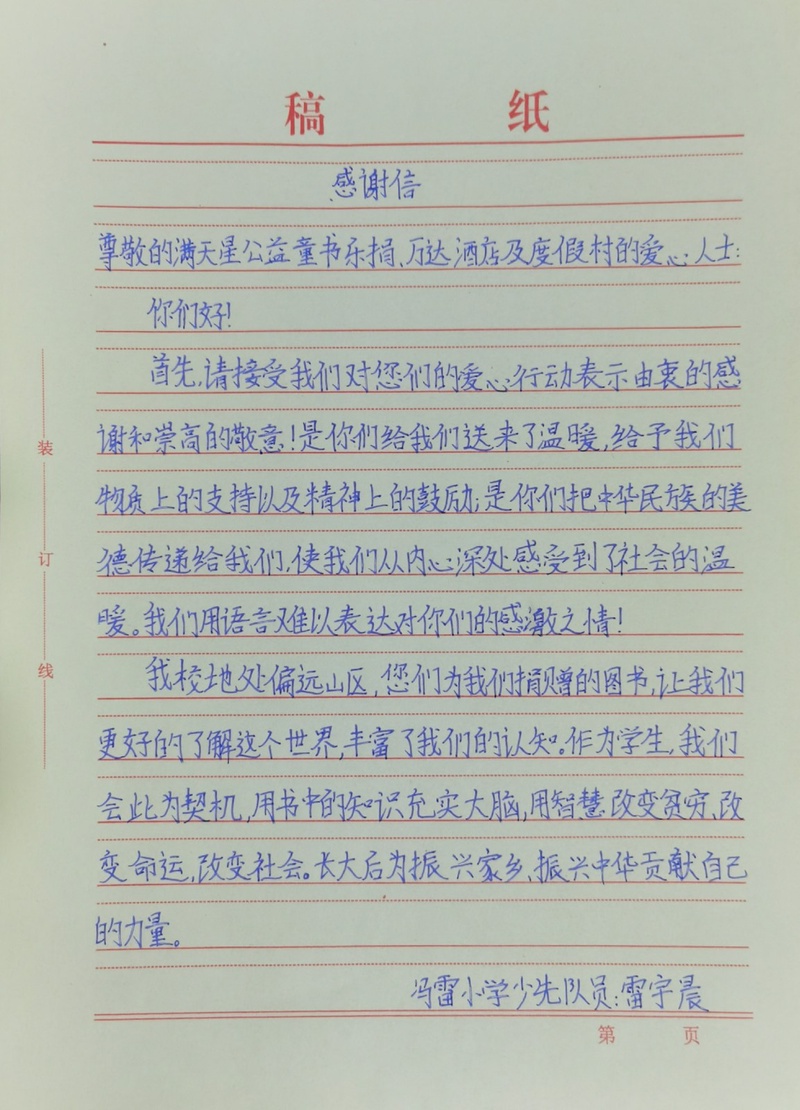 稿 纸
感谢信
尊敬的满天星公益童书乐捐、万达酒店及度假村的爱心人士:
你们好!
首先,请接受我们对您们的爱心行动表示由衷的感
谢和崇高的敬意!是你们给我们送来了温暖,给予我们
物质上的支持以及精神上的鼓励;是你们把中华民族的美
德传递给我们,使我们从内心深处感受到了社会的温
暖。我们用语言难以表达对你们的感激之情!
我校地处偏远山区,您们为我们捐赠的图书,让我们
更好的了解这个世界,丰富了我们的认知。作为学生,我们
会此为契机,用书中的知识充实大脑,用智慧改变贫穷、改
变命运,改变社会。长大后为振兴家乡、振兴中华贡献自己
的力量。
冯雷小学少先队员:雷宇晨
装
订
线
第 页